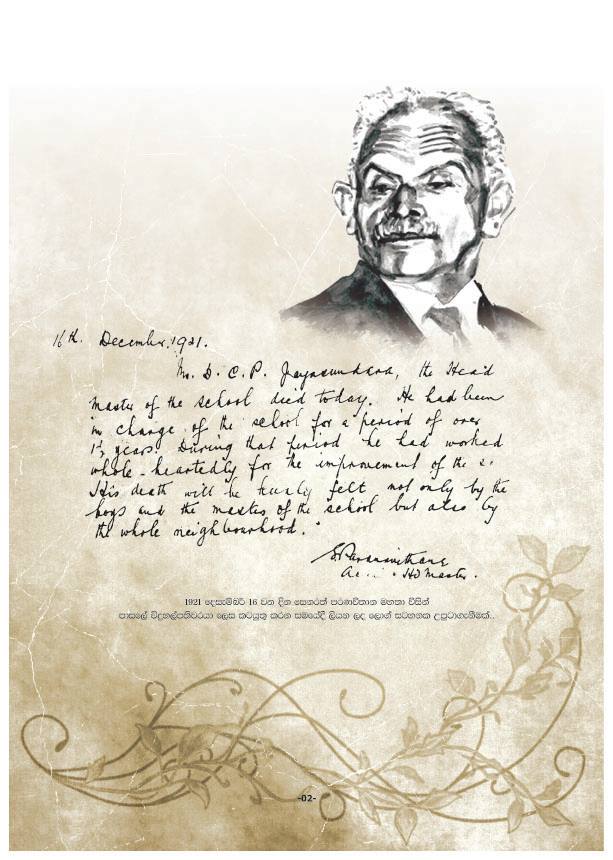 16th. December, 1921.
Mr. D. C. P. Jayasundara, the Head
master of the school died today. He had been
in charge of the school for a period of over
1½ years. During that period he had worked
whole-heartedly for the improvement of the
His death will be keenly felt not only by the
boys and the masters of the school but also by
the whole neighbourhood."
S. Paranavithana
Hd Master.
1921 දෙසැම්බර් 16 වන දින සෙනරත් පරණවිතාන මහතා විසින්
පාසලේ විදුහල්පතිවරයා ලෙස කටයුතු කරන සමයේදී ලියන ලද ලොග් සටහනක උපුටාගැනීමක්..
-02-